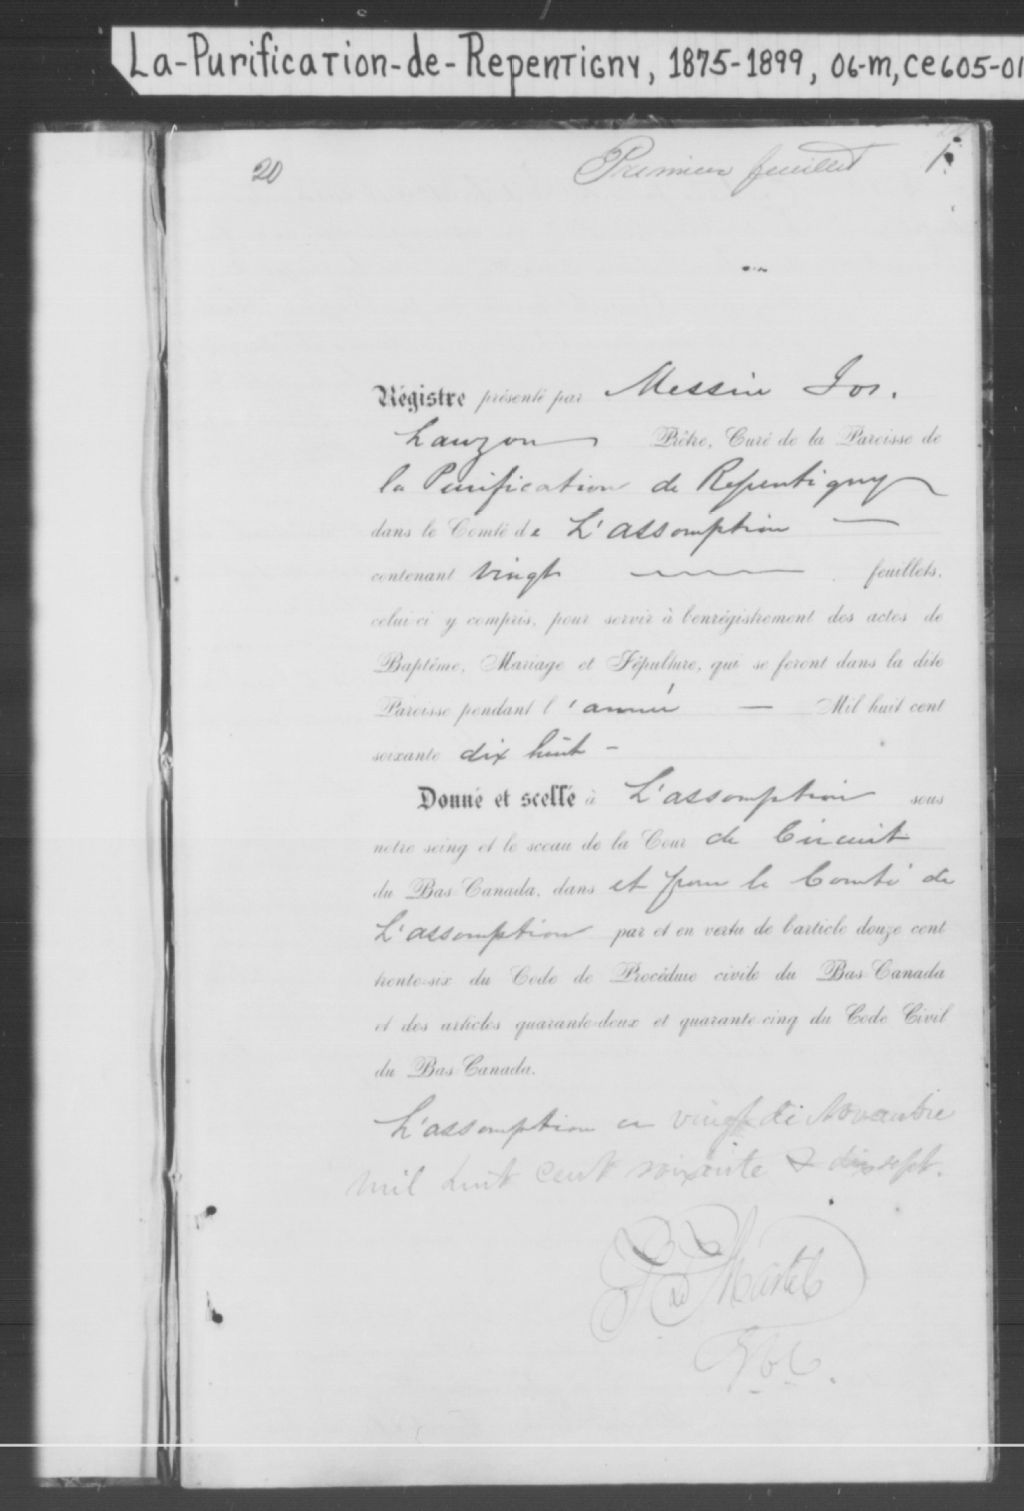 La-Purification-de-Repentigny, 1875-1899, 06-m, ce605-01
20 Premier feuillet 1.
Régistre présenté par Messire Jos.
Lauzon Prêtre, Curé de la Paroisse de
la Purification de Repentigny
dans le Comté de L'assomption —
contenant vingt feuillets,
celui-ci y compris, pour servir à l'enrégistrement des actes de
Baptême, Mariage et Sépulture, qui se feront dans la dite
Paroisse pendant l'année — Mil huit cent
soixante dix huit -
Donné et scellé à L'assomption sous
notre seing et le sceau de la Cour de Circuit
du Bas-Canada, dans et pour le Comté de
L'assomption par et en vertu de l'article douze cent
trente-six du Code de Procédure civile du Bas-Canada
et des articles quarante-deux et quarante-cinq du Code Civil
du Bas-Canada.
L'assomption ce vingt de Novembre
mil huit cent soixante & dix sept.
Martel